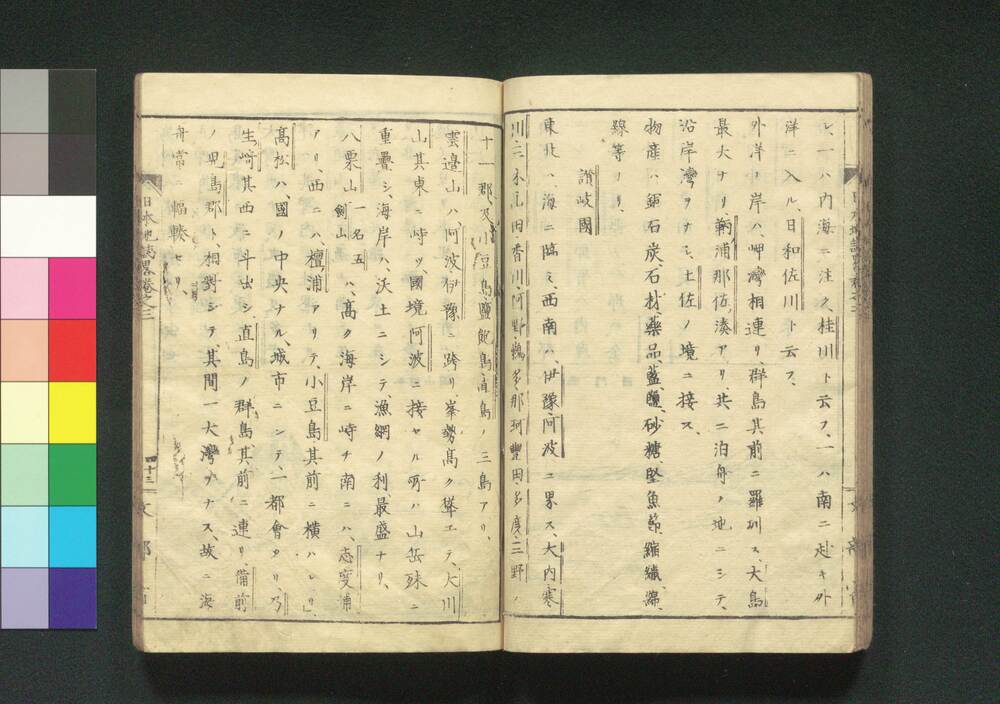 レ、一ハ内海ニ注ク、桂川ト云フ、一ハ南ニ赴キ外
洋ニ入ル、日和佐川ト云フ、
外洋ノ岸ハ、岬灣相連リ、群島其前ニ羅列ス、大島
最大ナリ、鞆浦那佐湊アリ、共ニ泊舟ノ地ニシテ、
沿岸灣ヲナシ、土佐ノ境ニ接ス、
物産ハ鑛石炭、石材、藥品、藍、鹽、砂糖、堅魚節、縮織、綿、
線等ナリ、
讃岐國
東北ハ、海ニ臨ミ、西南ハ、伊豫、阿波ニ界ス、大内、寒
川、三木、山田、香川、阿野、鵜多、那珂、豐田、多度、三野ノ
十一郡、及小豆島、鹽飽島、直島ノ三島アリ、
雲邊山ハ、阿波、伊豫ニ跨リ、峯勢高ク聳エテ、大川
山其東ニ峙ツ、國境阿波ニ接セル所ハ山岳殊ニ
重疊シ、海岸ハ、沃土ニシテ、漁網ノ利、最盛ナリ、
八栗山一名五劍山ハ、高ク海岸ニ峙チ南ニハ、志度浦
アリ、西ニハ、檀浦アリテ、小豆島其前ニ横ハレリ」
高松ハ、國ノ中央ナル、城市ニシテ、一都會ナリ、乃
生﨑其西ニ斗出シ、直島ノ群島、其前ニ連リ、備前
ノ兒島郡ト、相對シテ、其間一大灣ヲナス、故ニ海
舟常ニ輻輳セリ、
日本地誌畧卷之三
十三
文部省